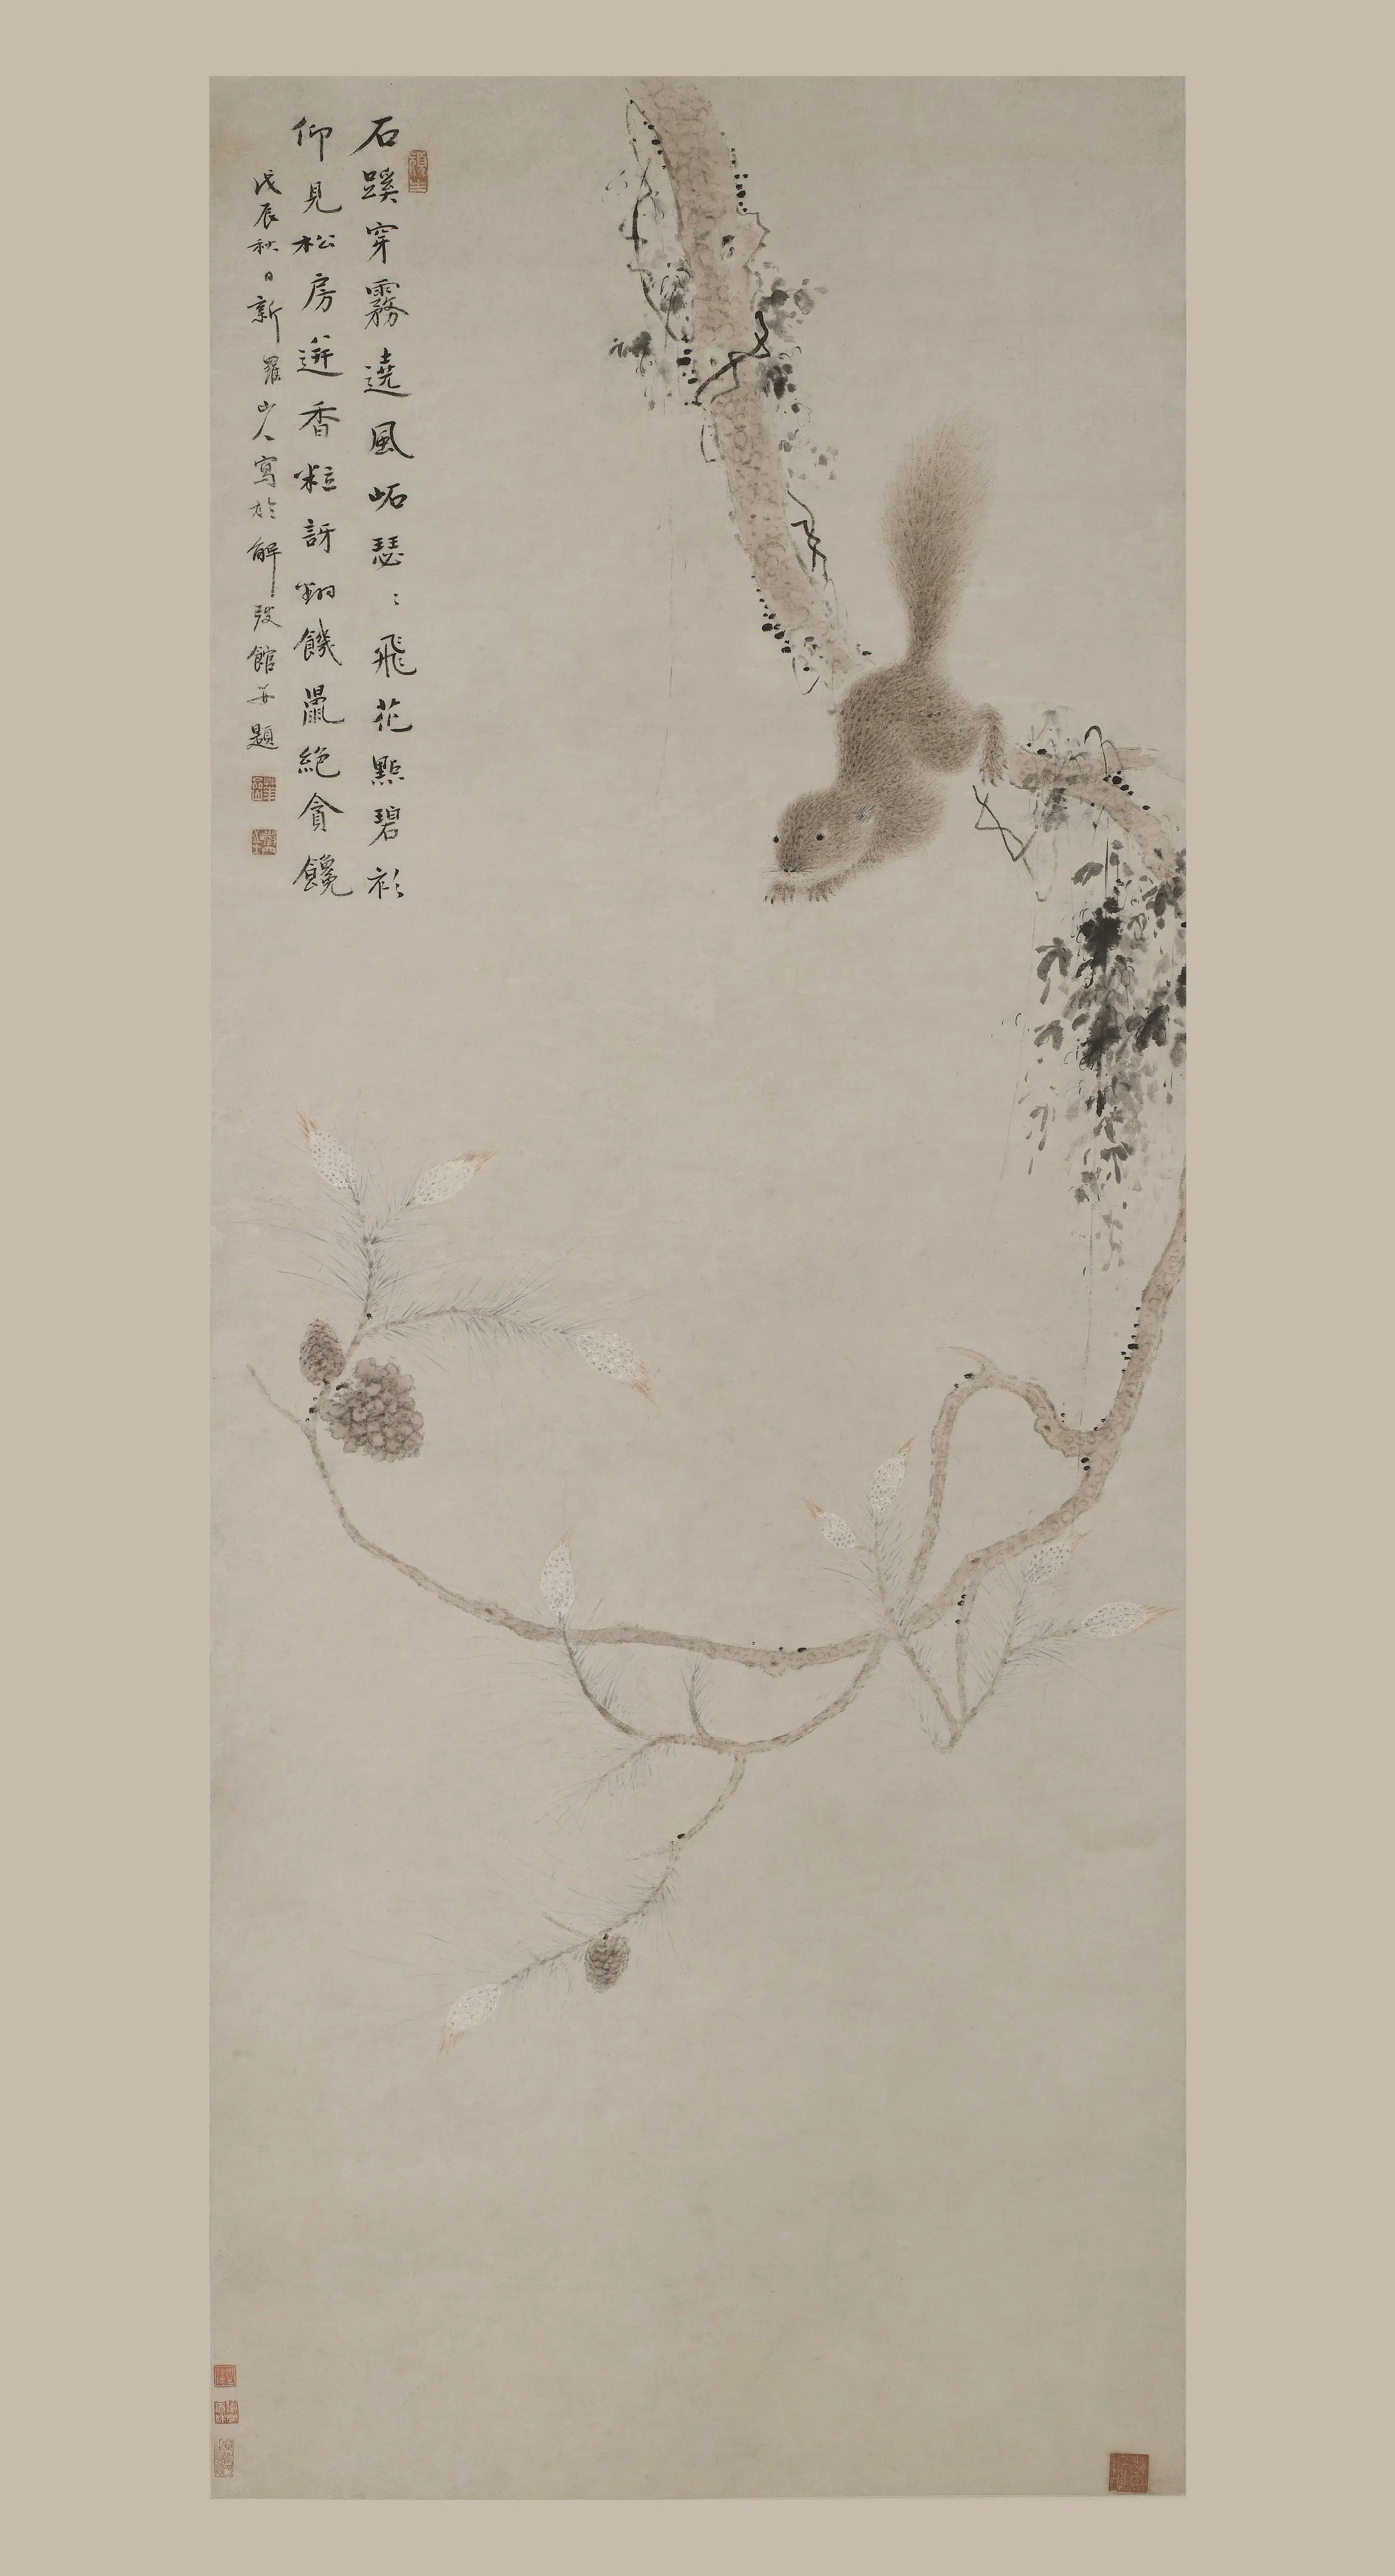 石蹊穿霧遶風岾瑟〻飛花點碧衫
仰見松房迸香粒訝翻饑鼯絶貪饞
戊辰秋日新羅山人寫於解弢館并題